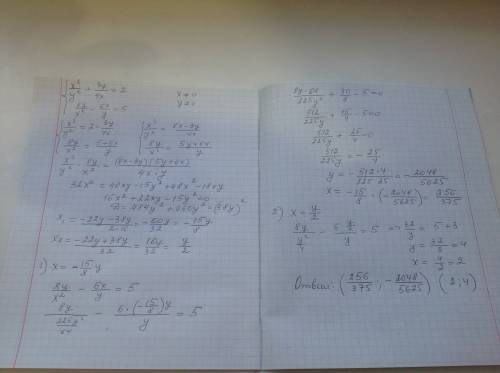 x²/y² + 3y/4x = 2    x≠0
8y/x² − 6x/y = 5    y≠0
x²/y² = 2 − 3y/4x    x²/y² = (8x−3y)/4x
8y/x² = 5 + 6x/y    8y/x² = (5y+6x)/y
x²/y² · 8y/x² = (8x−3y)(5y+6x)/(4x·y)
32x² = 40xy − 15y² + 48x² − 18xy
16x² + 22xy − 15y² = 0
D = 484y² + 960y² = (38y)²
x₁ = (−22y−38y)/(2·16) = −60y/32 = −15y/8
x₂ = (−22y+38y)/32 = 16y/32 = y/2
1) x = −15/8 y
8y/x² − 6x/y = 5
8y/(225y²/64) − 6·(−15/8)y/y = 5
8y·64/225y² + 90/8 − 5 = 0
512/225y + 45/4 − 5 = 0
512/225y + 25/4 = 0
512/225y = −25/4
y = −512·4/225·25 = −2048/5625
x = −15/8 · (−2048/5625) = 256/375
2) x = y/2
8y/(y²/4) − 6 (y/2)/y = 5 ⇒ 32/y = 5+3
y = 32/8 = 4
x = 4/2 = 2
Ответ: (256/375 ; −2048/5625) (2;4)